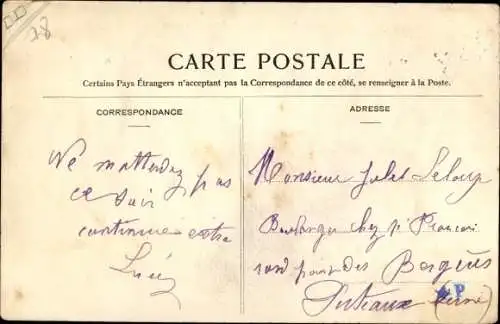 78
CARTE POSTALE
Certains Pays Étrangers n'acceptant pas la Correspondance de ce côté, se renseigner à la Poste.
CORRESPONDANCE
Ne m'attendez pas
ce soir
continue
ADRESSE
Monsieur Jules
Boulanger chez Mr François
rond point des Bergères
Puteaux (Seine)
P